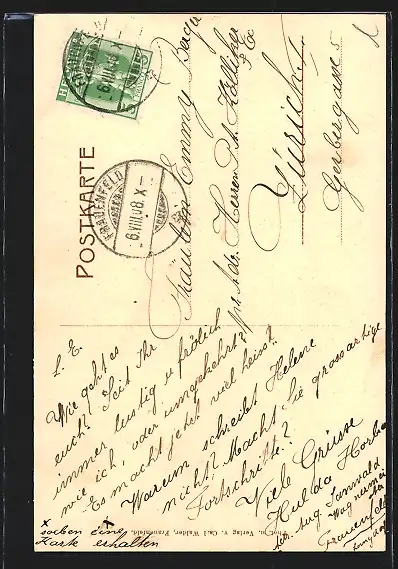 HELVETIA
FRAUENFELD
6.VIII.08.X
POSTKARTE
FRAUENFELD
6.VIII.08.X-
Fräulein Emmy
pr. Adr. Herren A. Kölliker
& Co
Zürich I
Gerbergasse 5
L. E.
Wie geht es
euch? Seit Ihr
immer lustig u fröhlich
wie ich, oder umgekehrt?
Es macht jetzt viel heiss!
Warum schreibt Helene
nicht? Macht Sie grossartige
Fortschritte?
Viele Grüsse
Hulda
Adr. Aug.
Wagnermei
ster
Frauenfeld
Phot. u. Verlag v. Carl Walder, Frauenfeld.
x
soeben eine
Karte erhalten